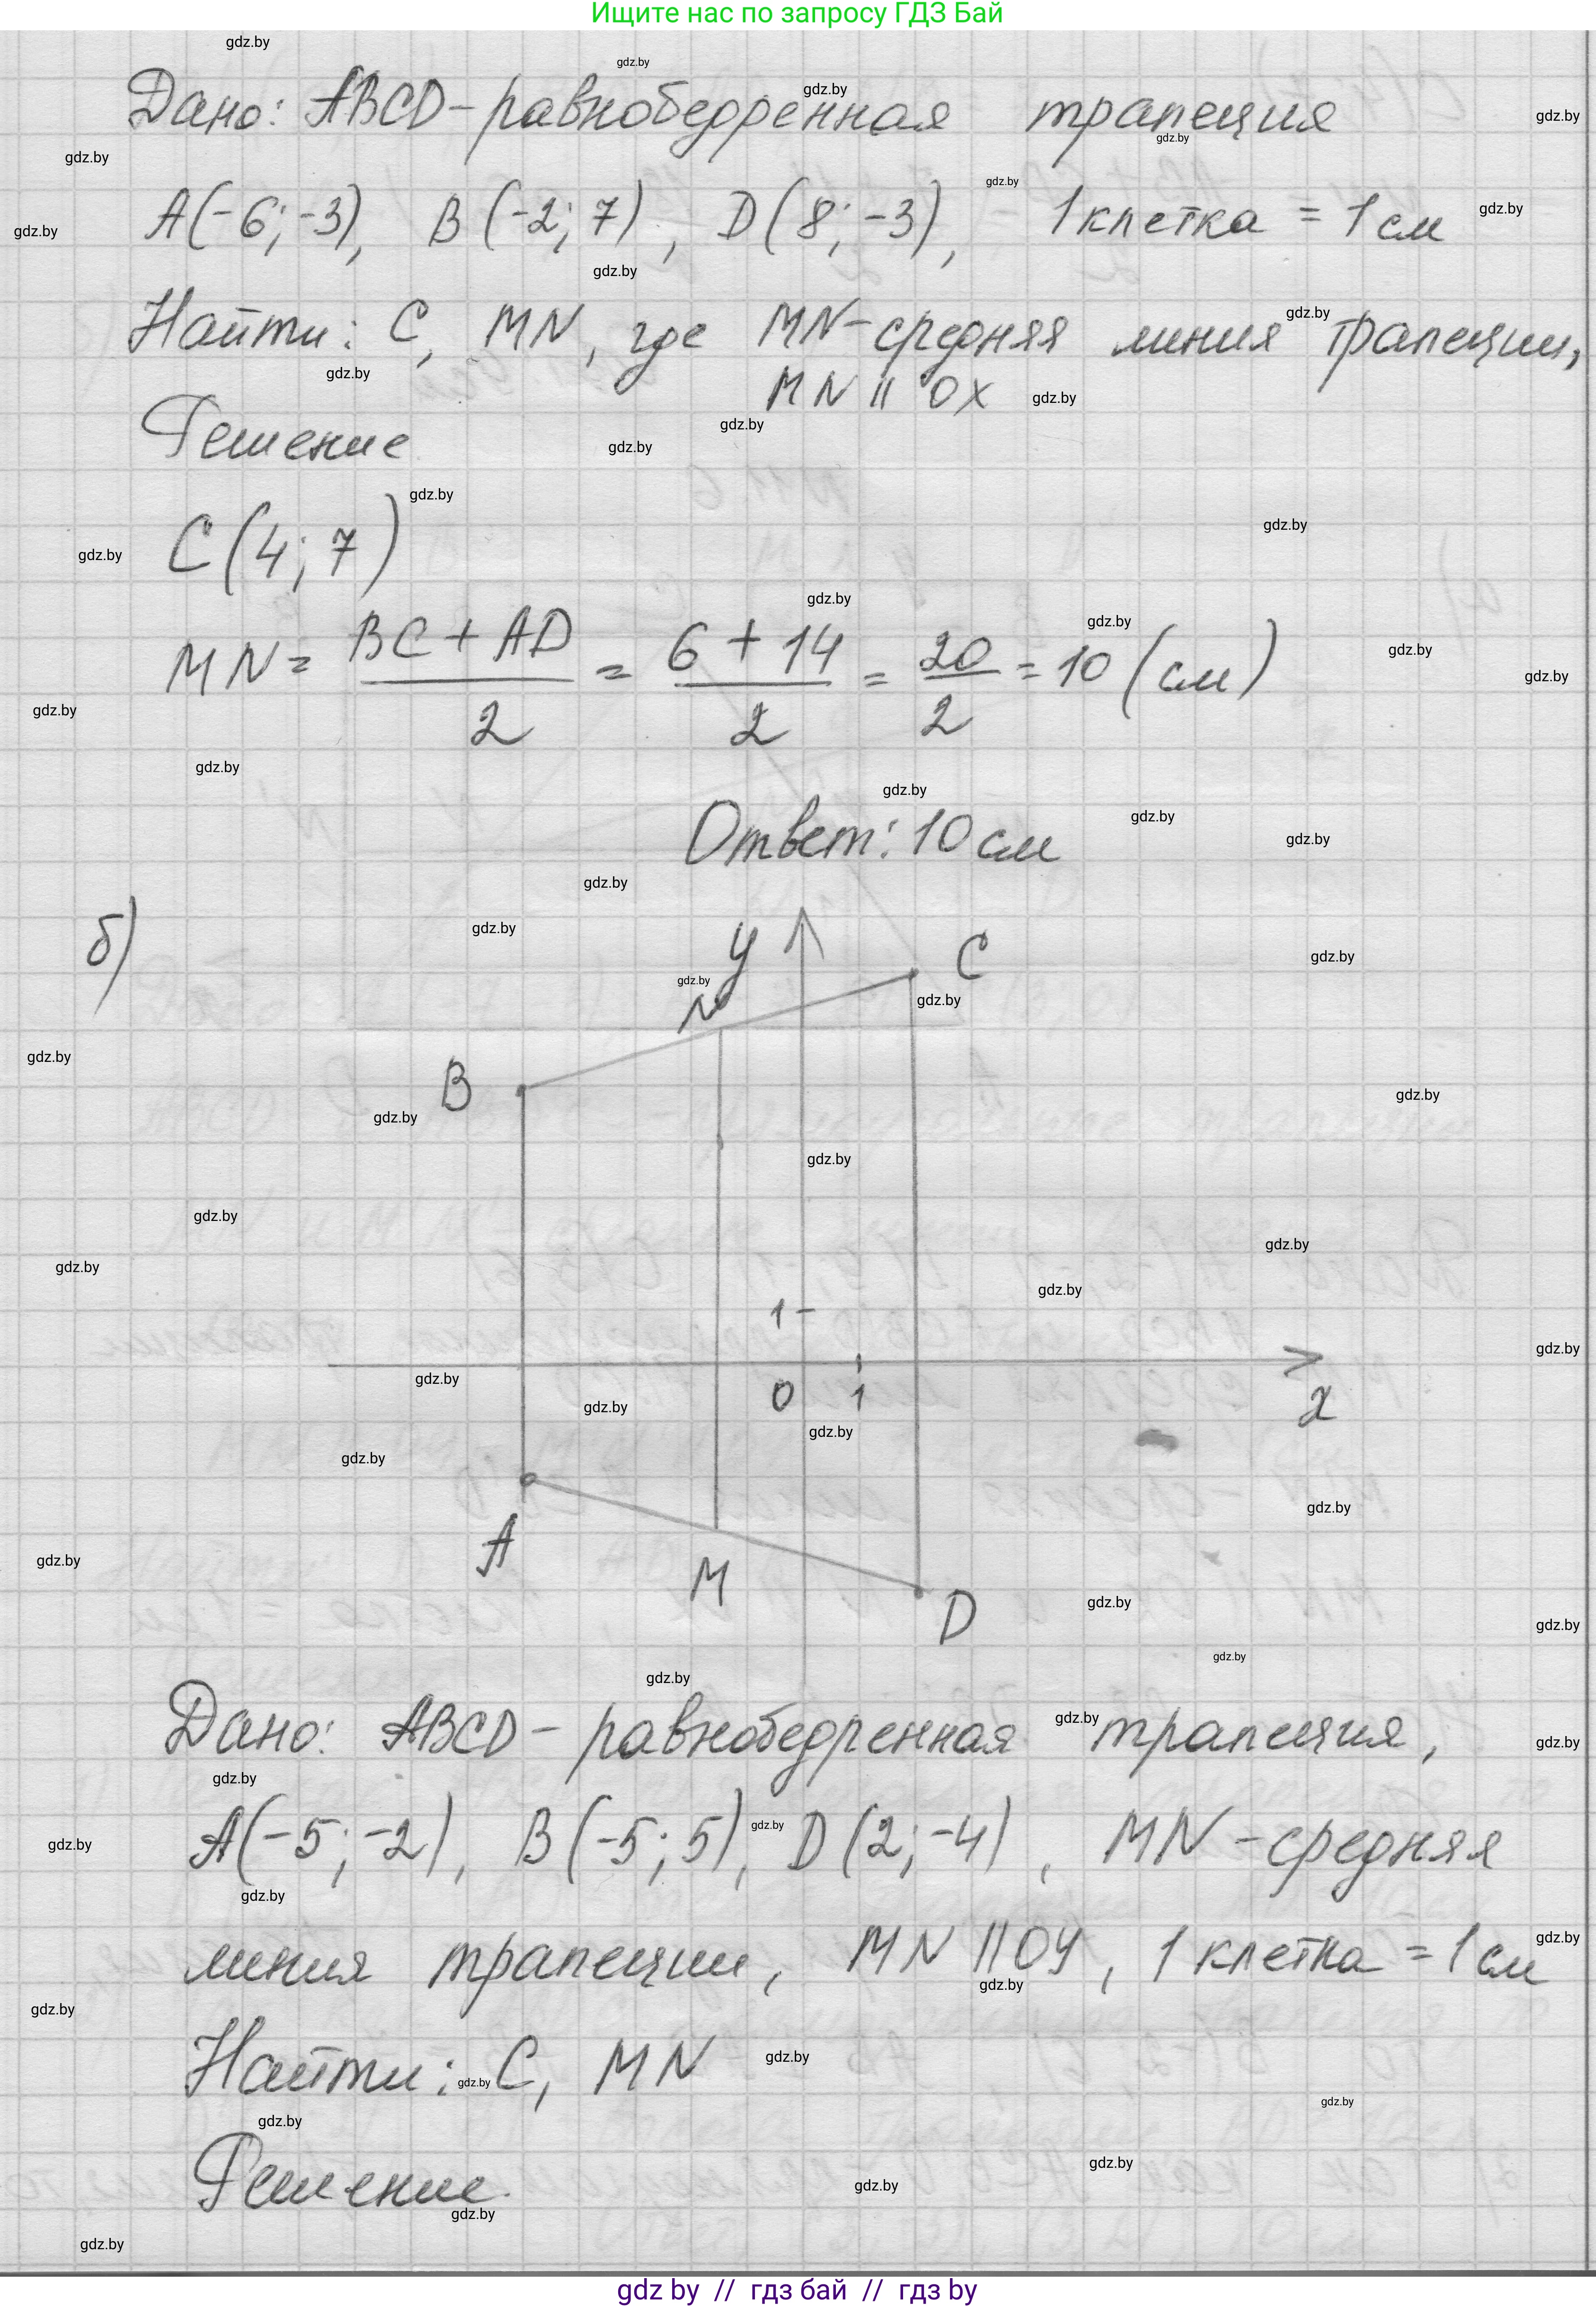 Ищите нас по запросу ГДЗ Бай
Дано: ABCD - равнобедренная трапеция
A(-6; -3), B(-2; 7), D(8; -3), 1 клетка = 1 см
Найти: C, MN, где MN - средняя линия трапеции,
MN || OX
Решение
C(4; 7)
MN = (BC + AD)/2 = (6 + 14)/2 = 20/2 = 10 (см)
Ответ: 10 см
б)
y
C
N
B
1
0 1
x
A
M
D
Дано: ABCD - равнобедренная трапеция,
A(-5; -2), B(-5; 5), D(2; -4), MN - средняя
линия трапеции, MN || OY, 1 клетка = 1 см
Найти: C, MN
Решение.
gdz.by
gdz by // гдз бай // гдз by